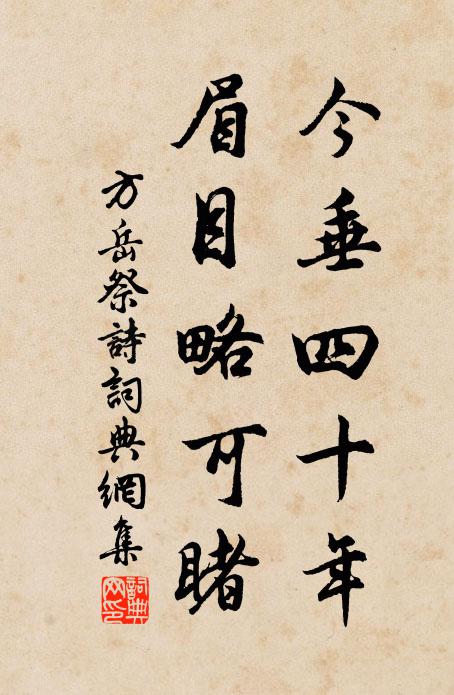 今垂四十年
眉目略可睹
方岳祭詩詞典網集
詞典网印